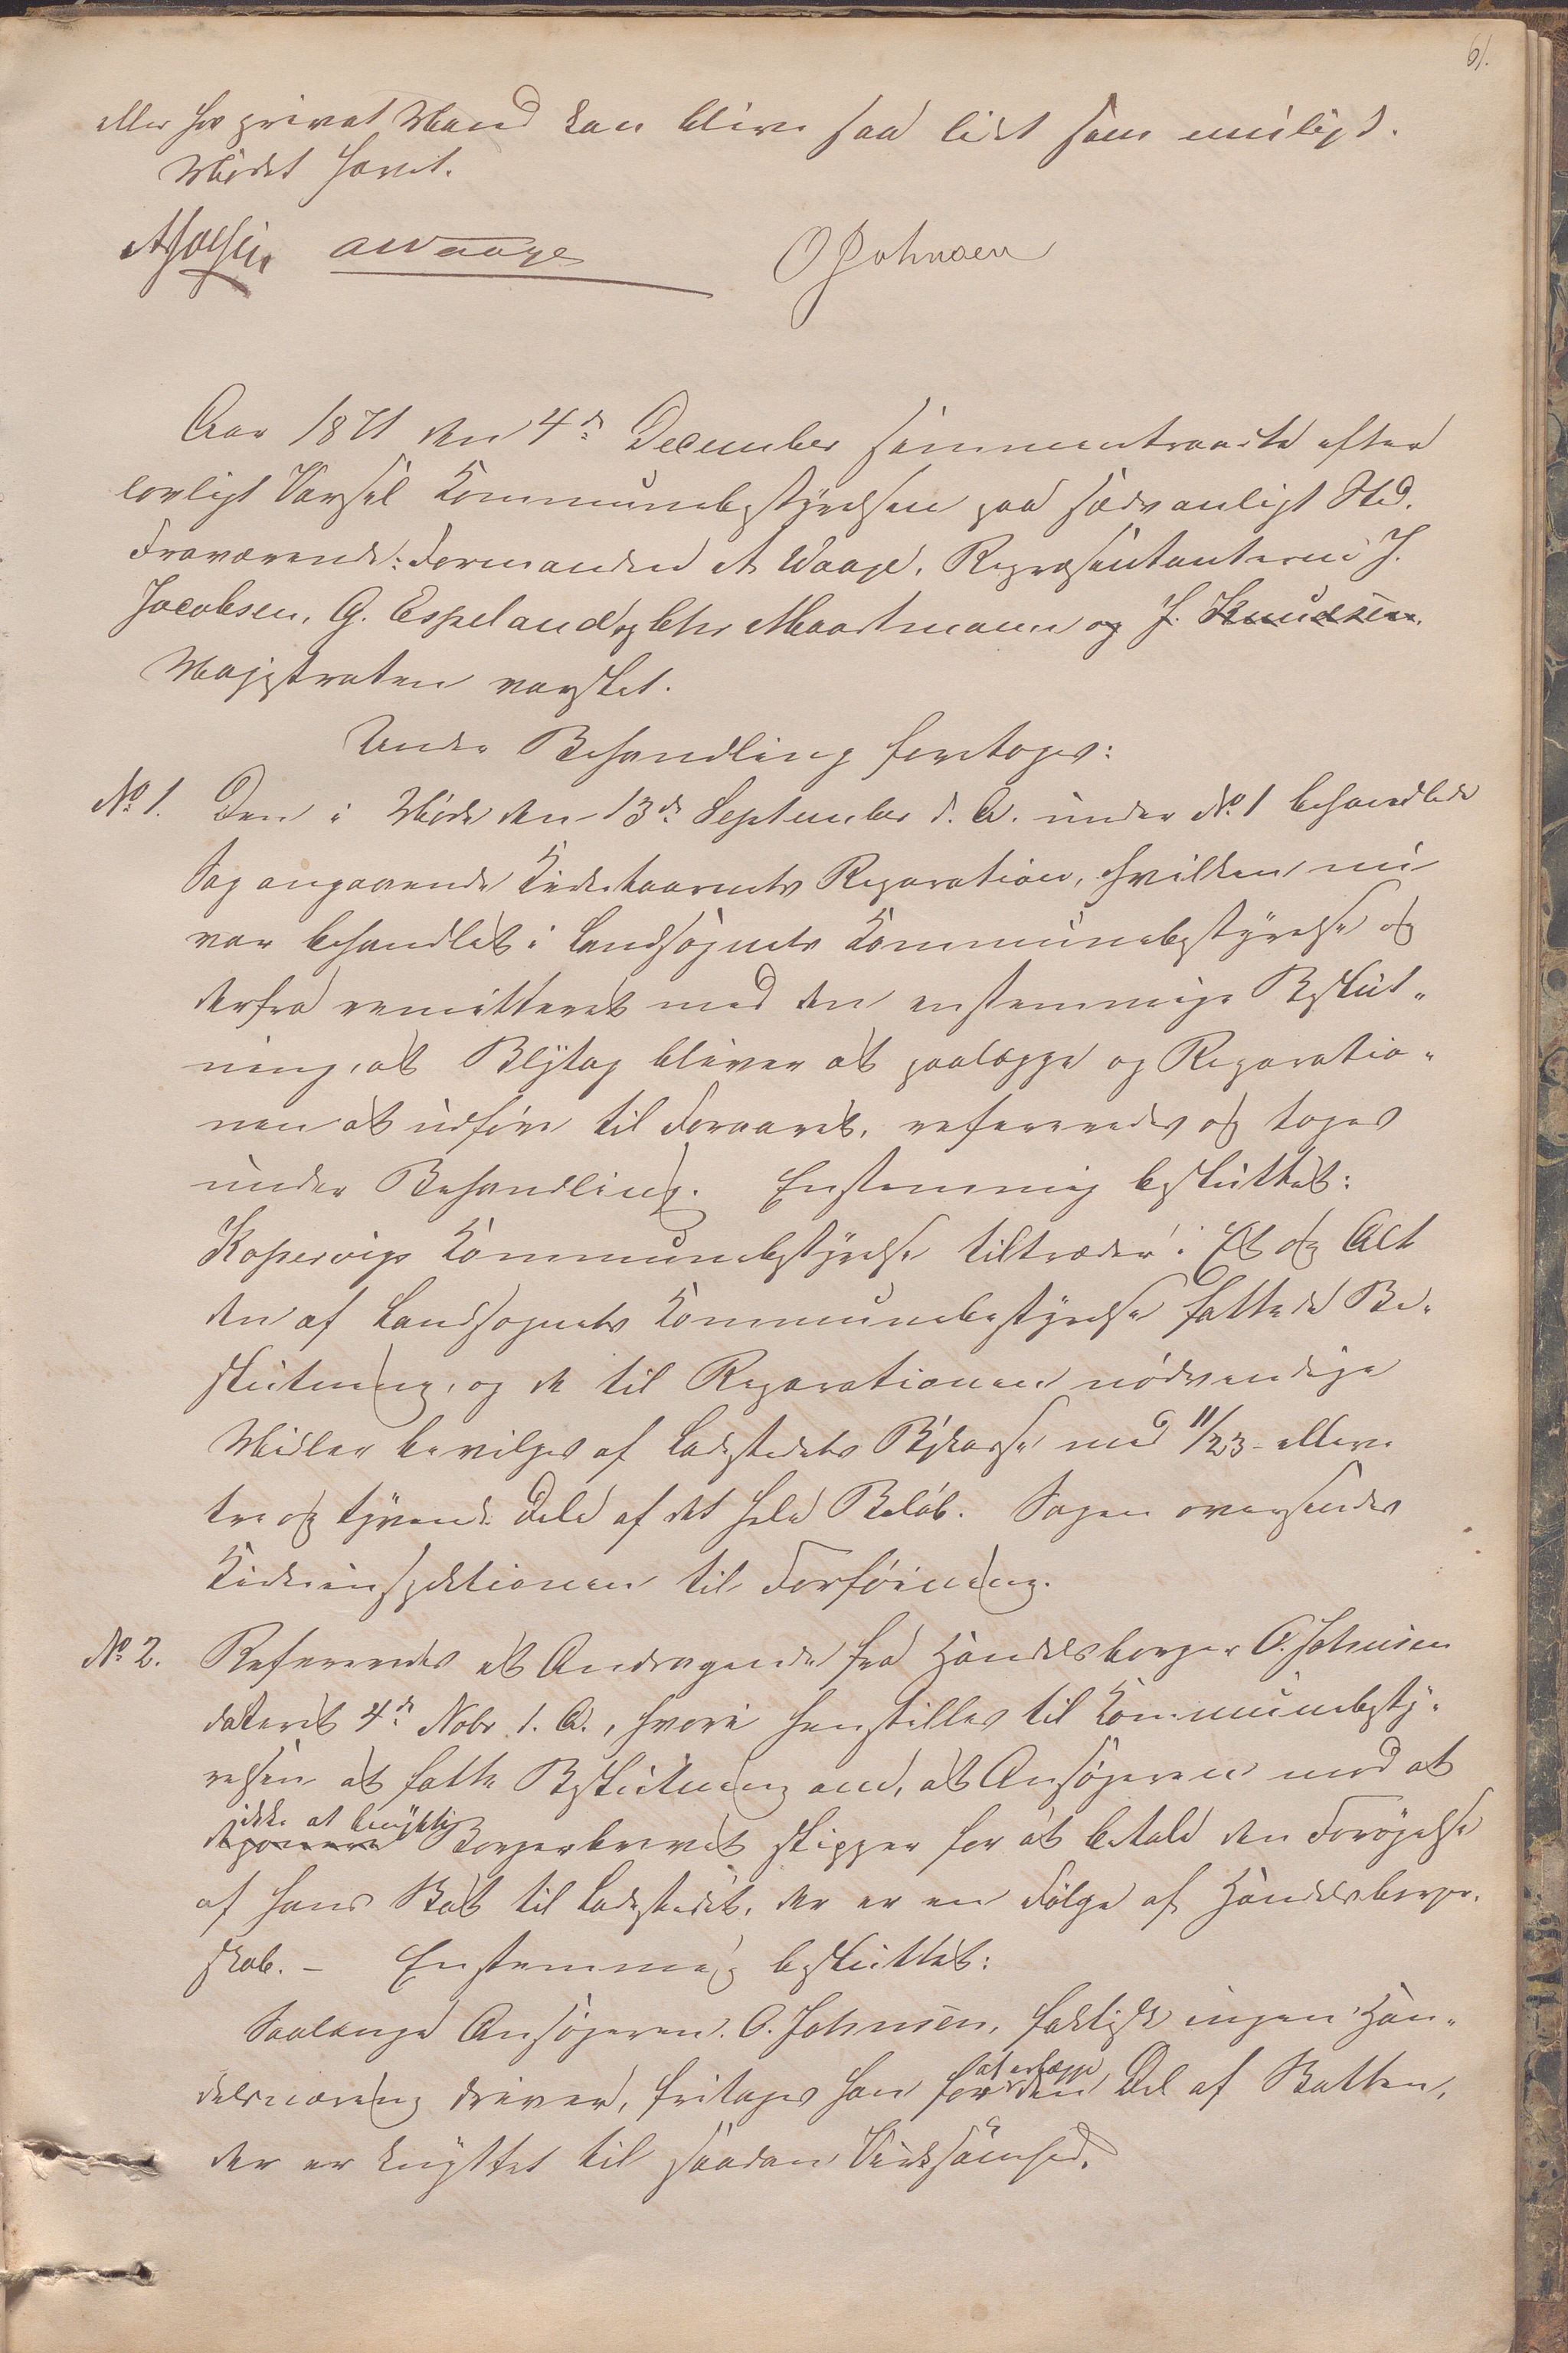 61.
eller hos privat Mand kan blive saa lidt som muligt.
Mødet hævet.
AWaage OJohnsen
Aar 1871 den 4de December sammentraadte efter
lovligt Varsel Kommunebestyrelsen paa sædvanligt Sted.
Fraværende: Formanden A Waage, Repræsentanterne J.
Jacobsen, G. Espeland og Chr Maartmann og J. Knudsen.
Magistraten varslet.
Under Behandling foretoges:
No 1. Den i Møde den 13de September d. A. under No 1 behandlede
Sag angaaende Kirketaarnets Reparation, hvilken nu
var behandlet i Landsognets Kommunebestyrelse og
derfra remitteret med den enstemmige Beslut-
ning, at Blytag bliver at paalægge og Reparatio-
nen at udføre til Foraaret, refereredes og toges
under Behandling. Enstemmig besluttet:
Kopervigs Kommunebestyrelse tiltræder i Et og Alt
den af Landsognets Kommunebestyrelse fattede Be-
slutning, og de til Reparationen nødvendige
Midler bevilges af Ladestedets Bykasse med 11/23 - elleve
tre og tyvende Dele af det hele Beløb. Sagen oversendes
Kirkeinspektionen til Forføining.
No 2. Refereredes et Andragende fra Handelsborger O. Johnsen
dateret 4de Nobr d. A., hvori henstilles til Kommunebesty-
relsen at fatte Beslutning om, at Ansøgeren mod at
ikke at benytte
deponere Borgerbrevet slipper for at betale den Forøgelse
af hans Skat til Ladestedet, der er en Følge af Handelsborger-
skab. - Enstemmig besluttet:
Saalænge Ansøgeren, O. Johnsen, faktisk ingen Han-
at erlægge
delsnæring driver, fritages han for den Del af Skatten,
der er knyttet til saadan Virksomhed.